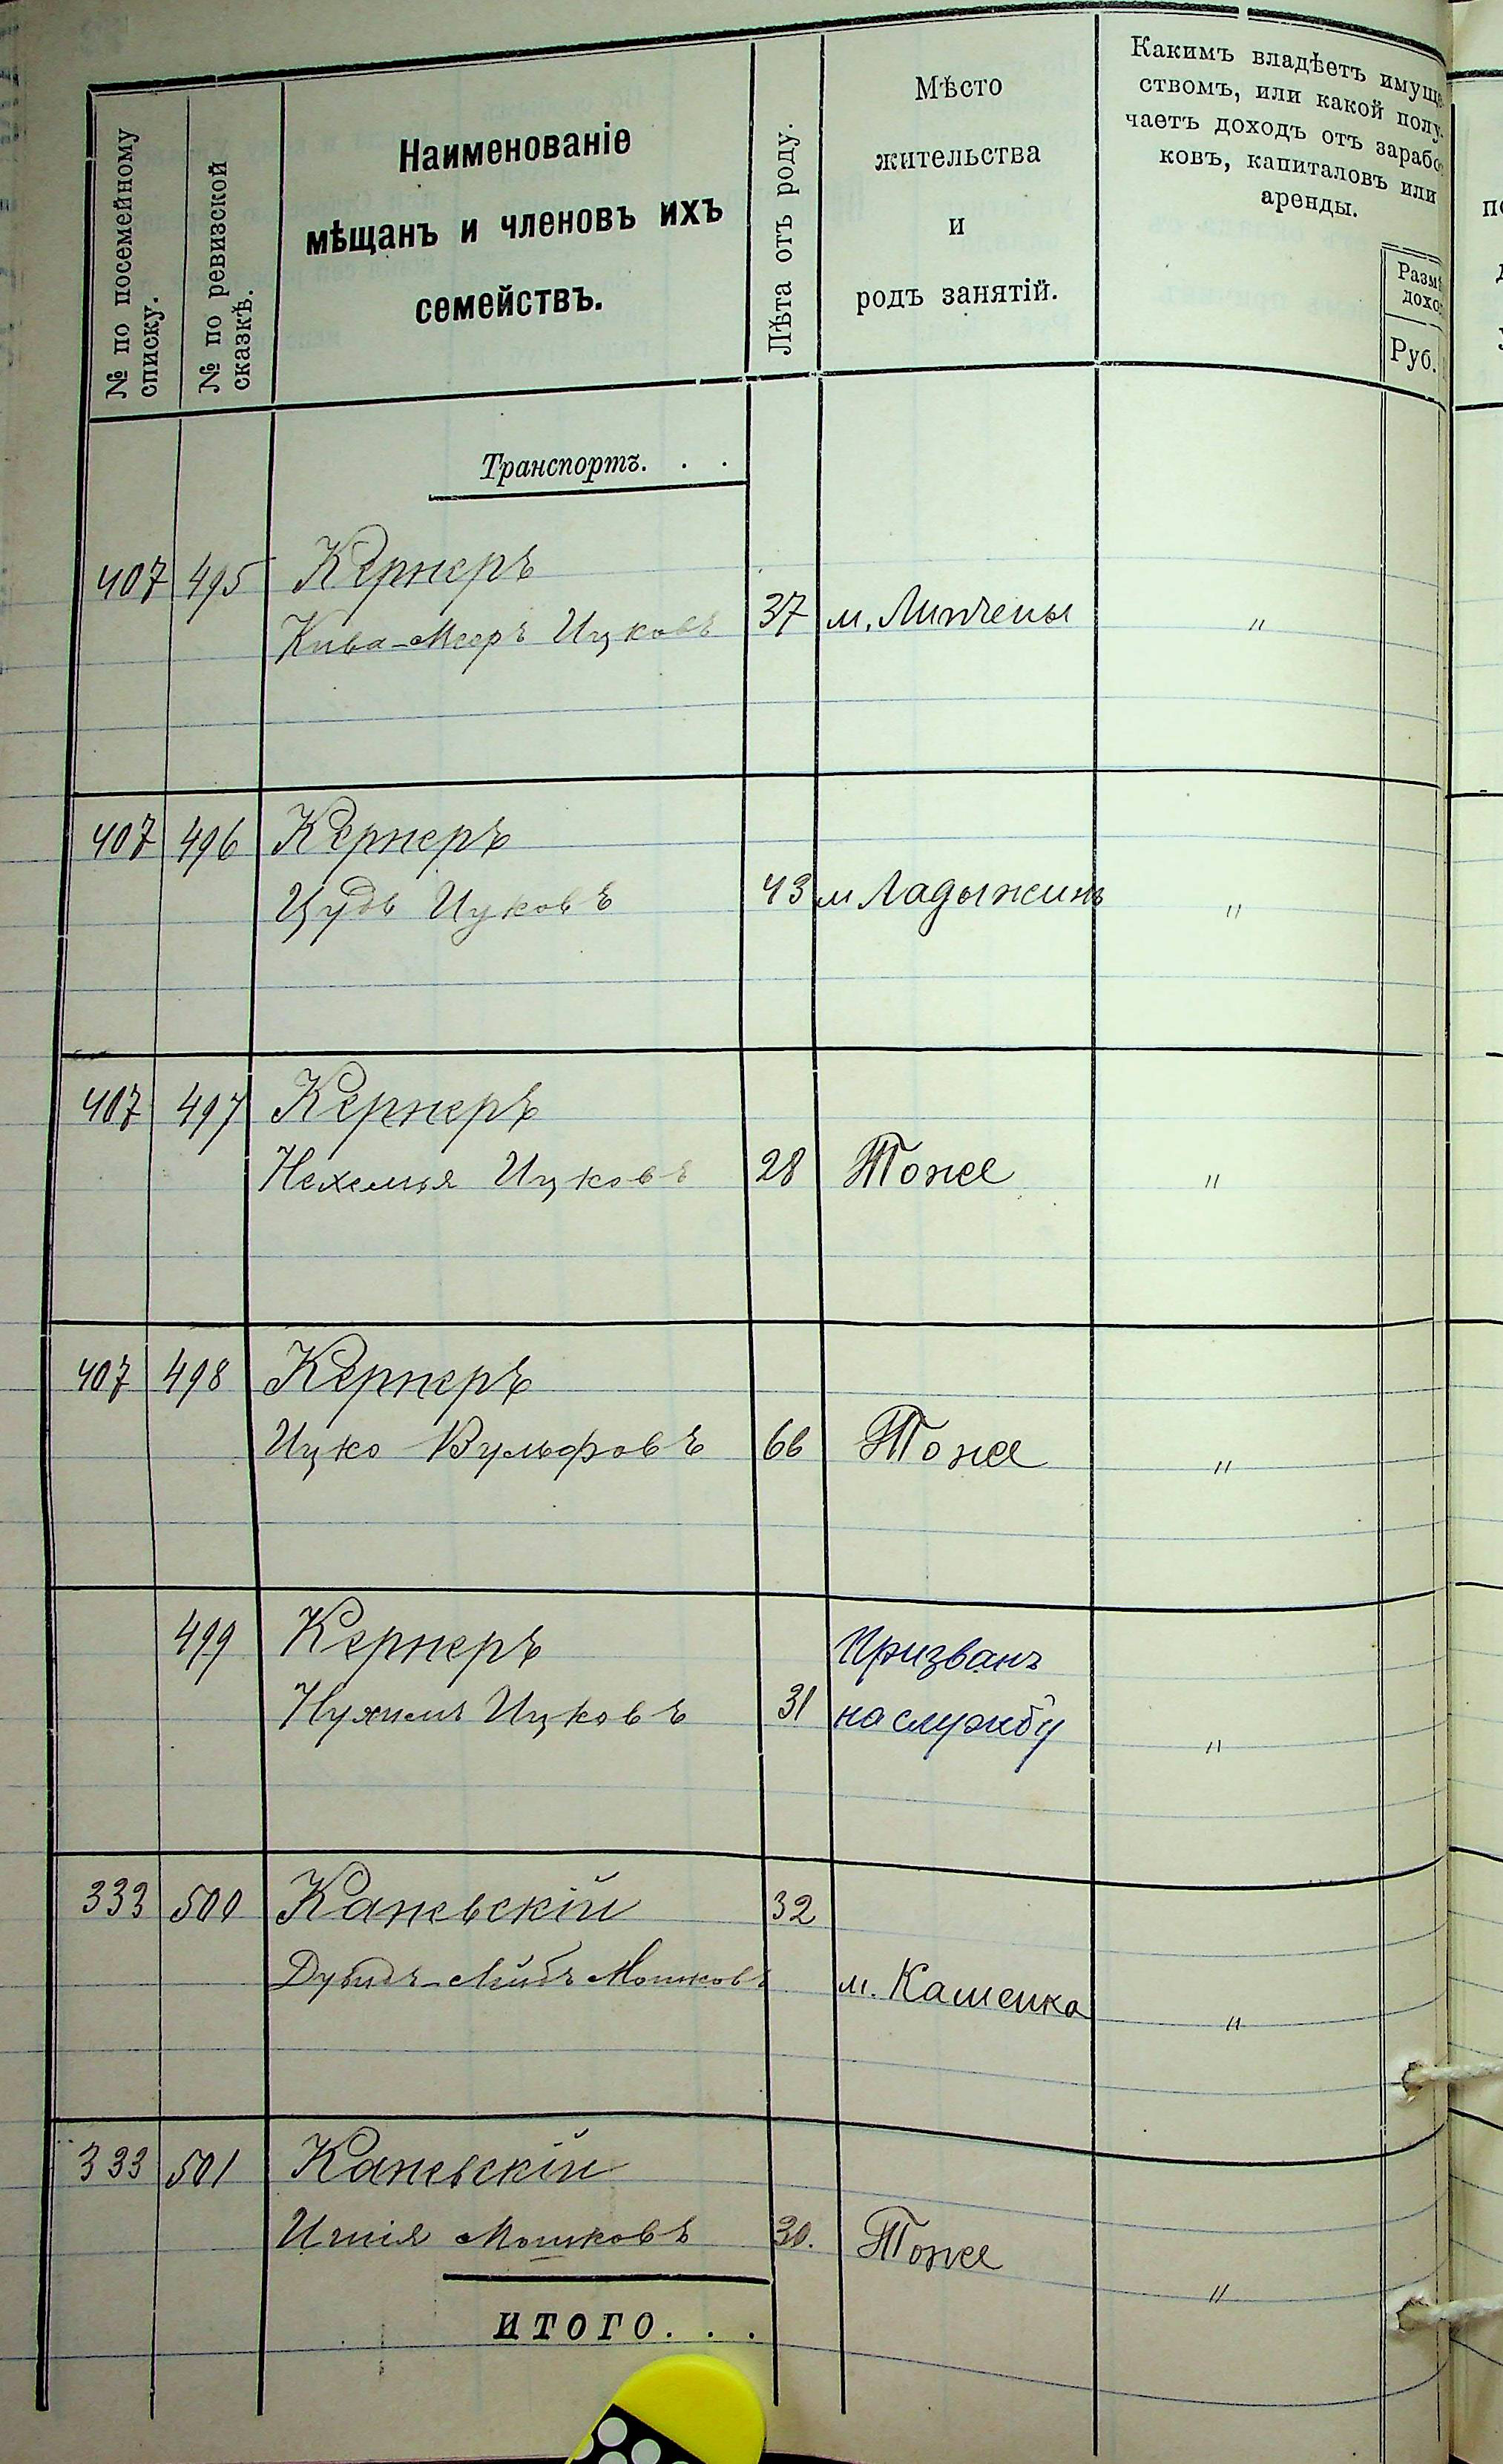 № по посемейному
списку.
№ по ревизской
сказкѣ.
Наименованіе
мѣщанъ и членовъ ихъ
семействъ.
Лѣта отъ роду.
Мѣсто
жительства
и
родъ занятій.
Какимъ владѣетъ имуще
ствомъ, или какой полу-
чаетъ доходъ отъ зарабо
ковъ, капиталовъ или
аренды.
Разм
дохо
Руб.
Транспортъ. . .
407 495 Кернеръ
Кива-Меер Ицковъ 37 м. "
407 496 Кернеръ
Ицковъ 43 м Ладыжинъ "
407 497 Кернеръ
Нехемія Ицковъ 28 Тоже "
407 498 Кернеръ
Ицко Вульфовъ 66 Тоже "
499 Кернеръ Призванъ
Нухимъ Ицковъ 31 на службу "
333 500 Каневскій 32
Дувидъ-Лейбъ Мошковъ м. Каменка "
333 501 Каневскій
Мошковъ 30. Тоже "
ИТОГО. . .